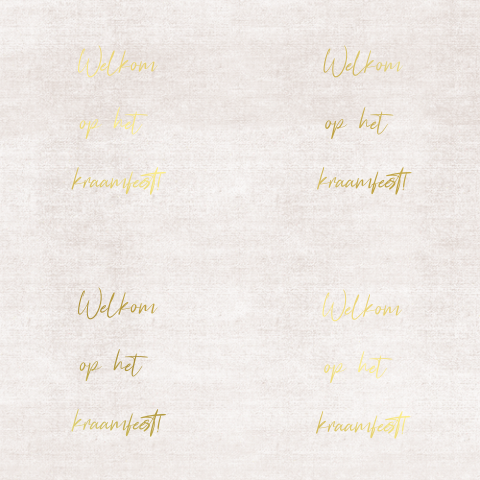 Welkom
Welkom
op het
op het
kraamfeest!
kraamfeest!
Welkom
Welkom
op het
op het
kraamfeest!
kraamfeest!